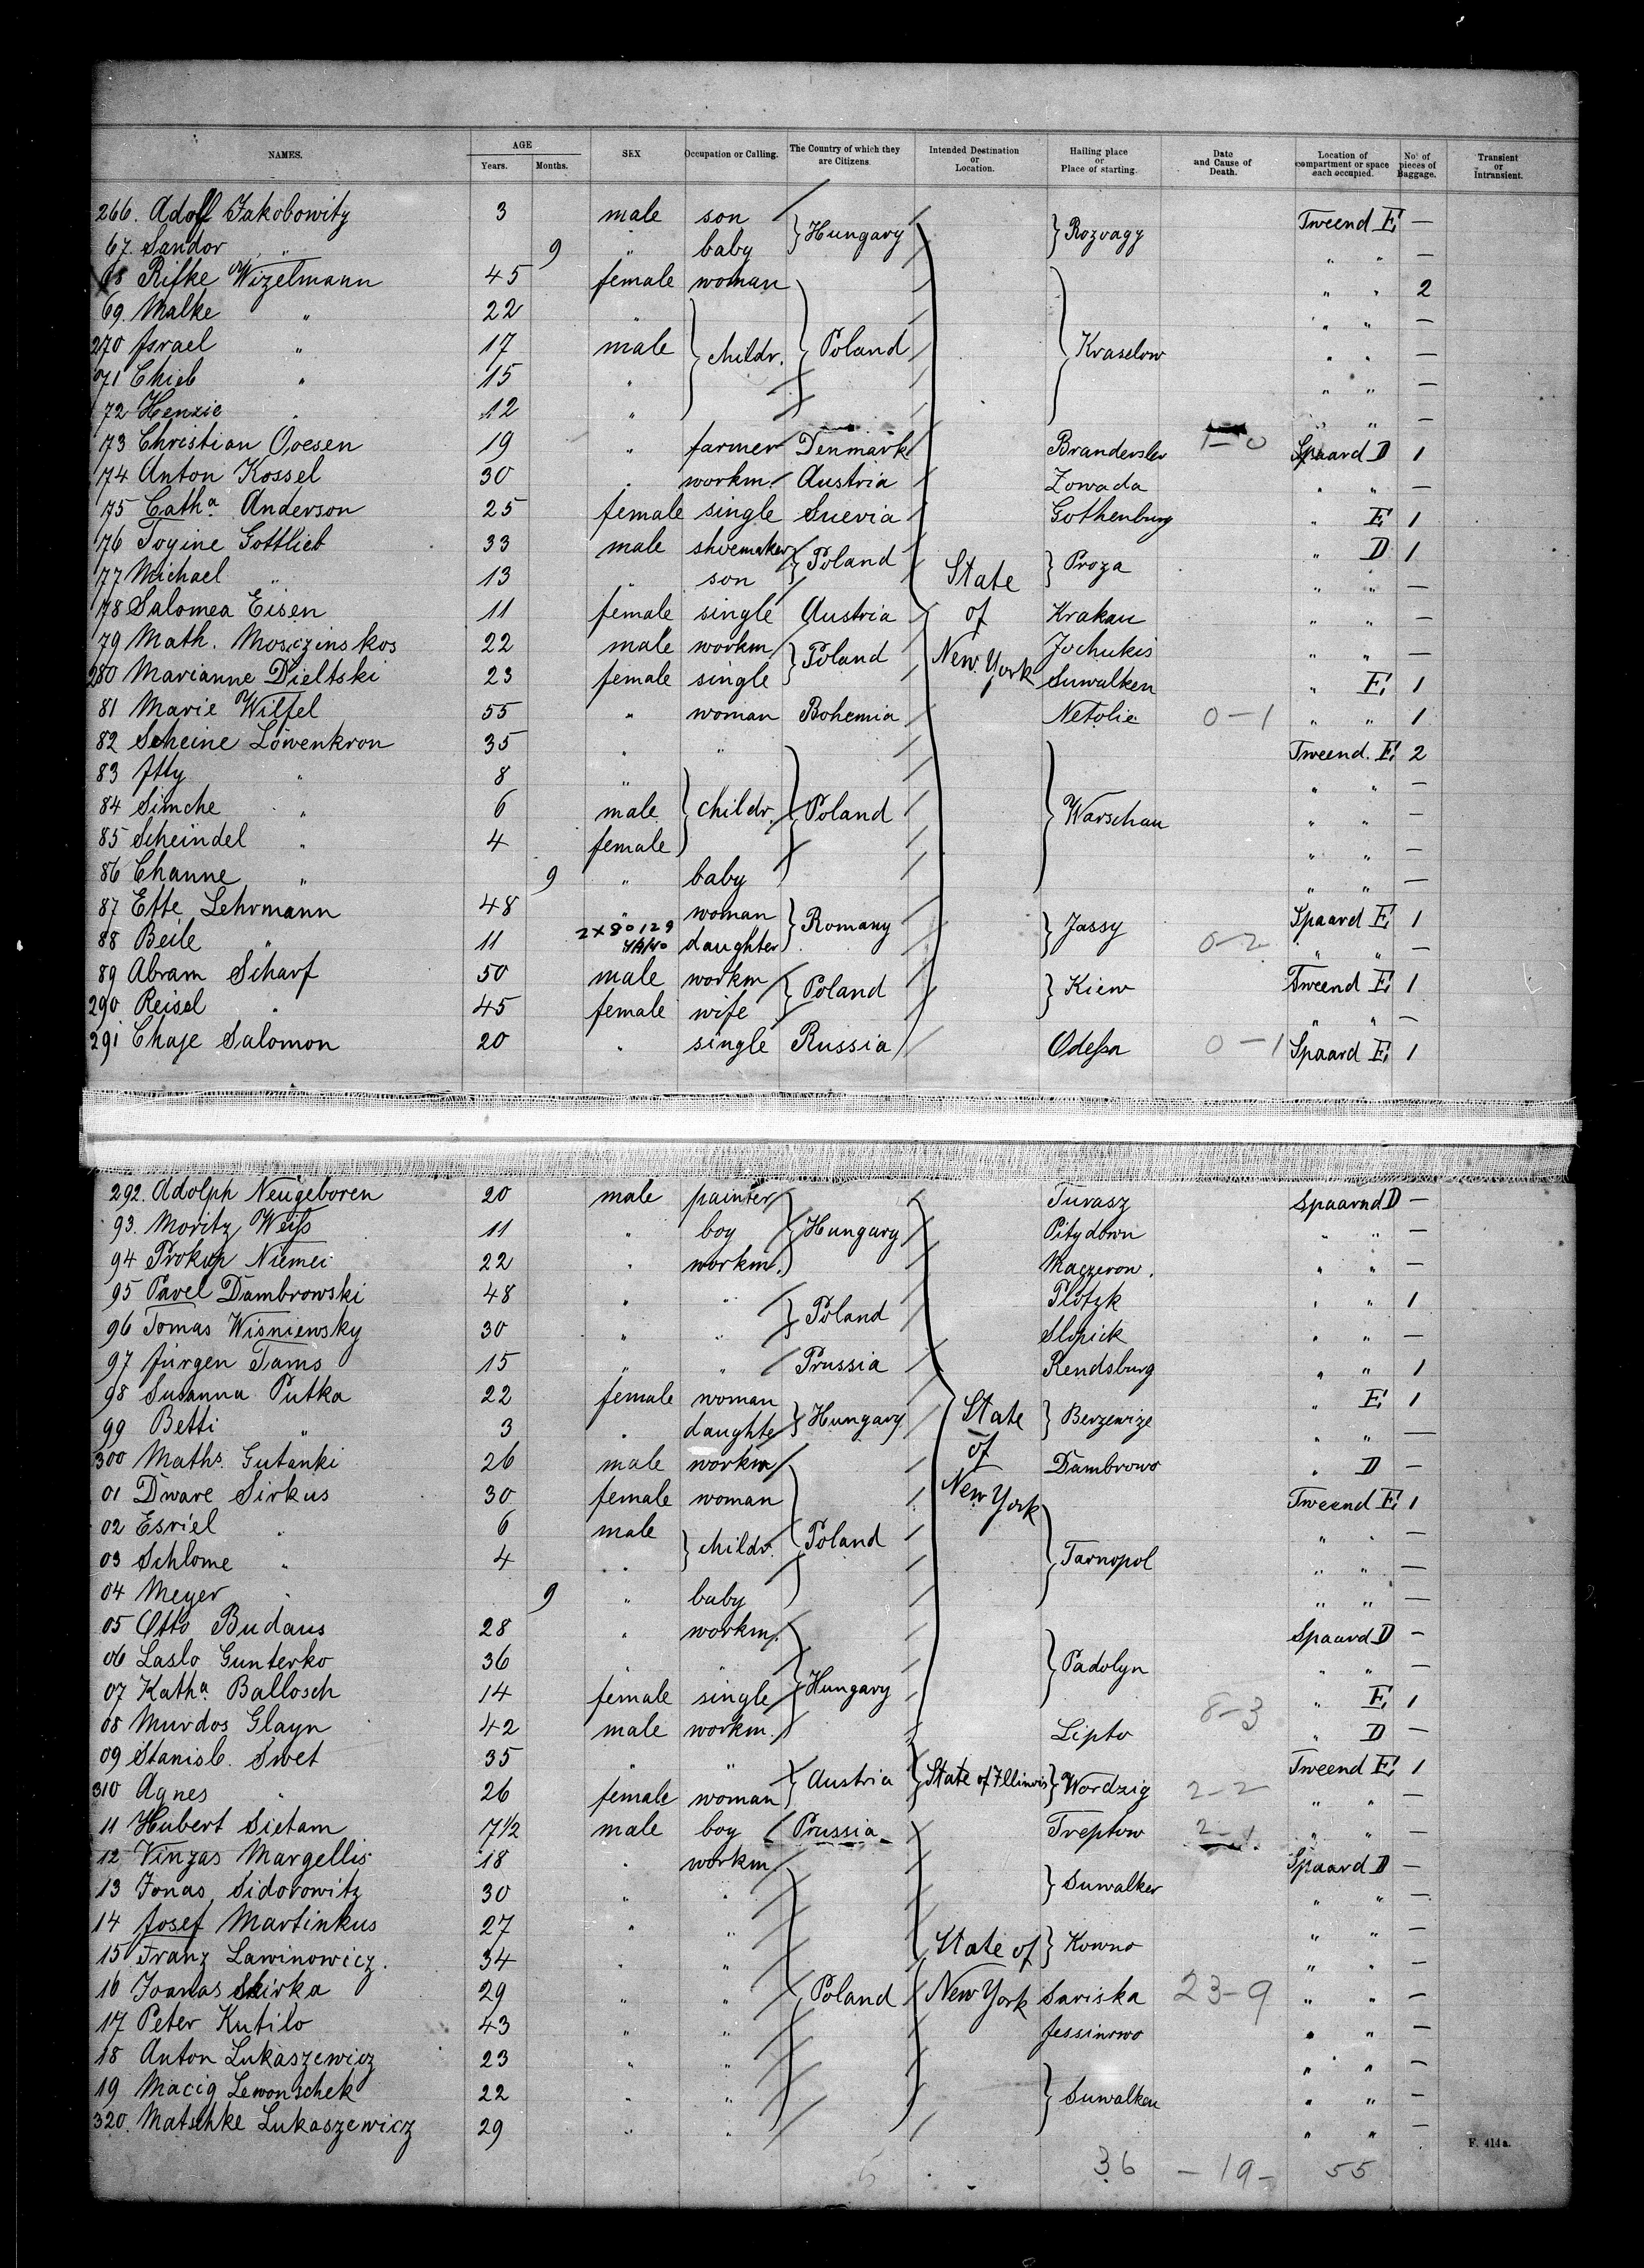 NAMES. AGE SEX Occupation or Calling. The Country of which they are Citizens. Intended Destination or Location. Hailing place or Place of starting. Date and Cause of Death. Location of compartment or space each occupied. No. of pieces of Baggage. Transient or Intransient.
Years. Months.
266. Adolf Jakobowitz 3 male son Hungary Rozvagy Tweend E —
67. Sandor " 9 " baby " " —
68 Rifke Wizelmann 45 female woman " " 2
69. Malke " 22 " " " —
270 Israel " 17 male childr. Poland Kraselow " " —
071 Chieb " 15 " " " —
72 Henzie " 12 " " " —
73 Christian Ovesen 19 " farmer Denmark Branderslev 1—0 Spaard D 1
74 Anton Kossel 30 " workm. Austria Zowada " " —
75 Catha Anderson 25 female single Suevia Gothenburg " E 1
76 Toyine Gottlieb 33 male shoemaker Poland Proza " D 1
77 Michael " 13 " son State " " —
78 Salomea Eisen 11 female single Austria of Krakau " " —
79 Math. Mosczinskos 22 male workm Poland New York Jochukis " " —
280 Marianne Dieltski 23 female single Suwalken " E 1
81 Marie Wilfel 55 " woman Bohemia Netolie 0—1 " " 1
82 Scheine Löwenkron 35 " " Tweend. E 2
83 Itty " 8 " " " —
84 Simche " 6 male childr. Poland Warschau " " —
85 Scheindel " 4 female " " —
86 Channe " 9 " baby " " —
87 Ette Lehrmann 48 " woman Romany Jassy Spaard E 1
2x80129
88 Beile " 11 daughter 0—2 " " —
89 Abram Scharf 50 male workm Poland Kiew Tweend E 1
290 Reisel " 45 female wife " " —
291 Chaje Salomon 20 " single Russia Odessa 0—1 Spaard E 1
292. Adolph Neugeboren 20 male painter Turasz Spaarnd D —
93. Moritz Weiss 11 " boy Hungary Pitydown " " —
94 Prokop Niemei 22 " workm. Maczerow. " " —
95 Pavel Dambrowski 48 " " Poland Plotzk " " 1
96 Tomas Wisniewsky 30 " " Slopick " " —
97 Jürgen Tams 15 " " Prussia Rendsburg " " 1
98 Susanna Putka 22 female woman Hungary State Berzewize " E 1
99 Betti " 3 " daughte " " —
300 Maths. Gutanki 26 male workm of Dambrowo " D —
01 Dware Sirkus 30 female woman New York Tweend E 1
02 Esriel " 6 male childr. Poland " " —
03 Schlome " 4 " Tarnopol " " —
04 Meyer " 9 " baby " " —
05 Otto Budaus 28 " workm. Spaard D —
06 Laslo Gunterko 36 " " Hungary Padolyn " " —
07 Katha Ballosch 14 female single " E 1
08 Murdos Glayn 42 male workm. Lipto 8—3 " D —
09 Stanisl. Swet 35 " " Austria State of Illinois Wordzig Tweend E 1
310 Agnes " 26 female woman 2—2 " " —
11 Hubert Sietam 7 1/2 male boy Prussia Treptow 2—1 " " —
12 Vinzas Margellis 18 " workm Spaard D —
13 Jonas Sidorowitz 30 " " Suwalker " " —
14 Josef Martinkus 27 " " State of Kowno " " —
15 Franz Lawinowicz. 34 " " " " —
16 Joanas Skirka 29 " " Poland New York Sariska 23—9 " " —
17 Peter Kutilo 43 " " Jessinowo " " —
18 Anton Lukaszewicz 23 " " " " —
19 Macig Lewonschek 22 " " Suwalken " " —
320. Matschke Lukaszewicz 29 " " " " —
F. 414a.
36 — 19 — 55